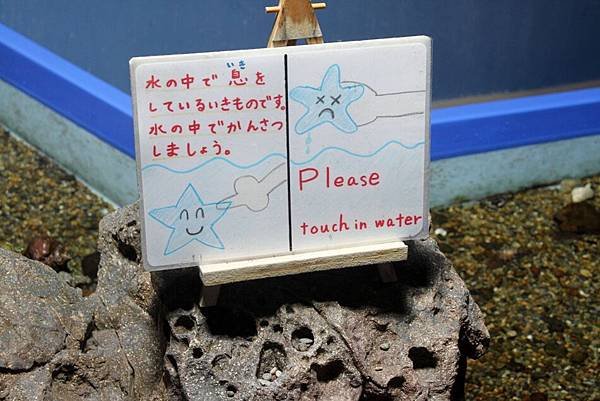 水の中で息いきを
しているいきものです。
水の中でかんさつ
しましょう。
Please
touch in water